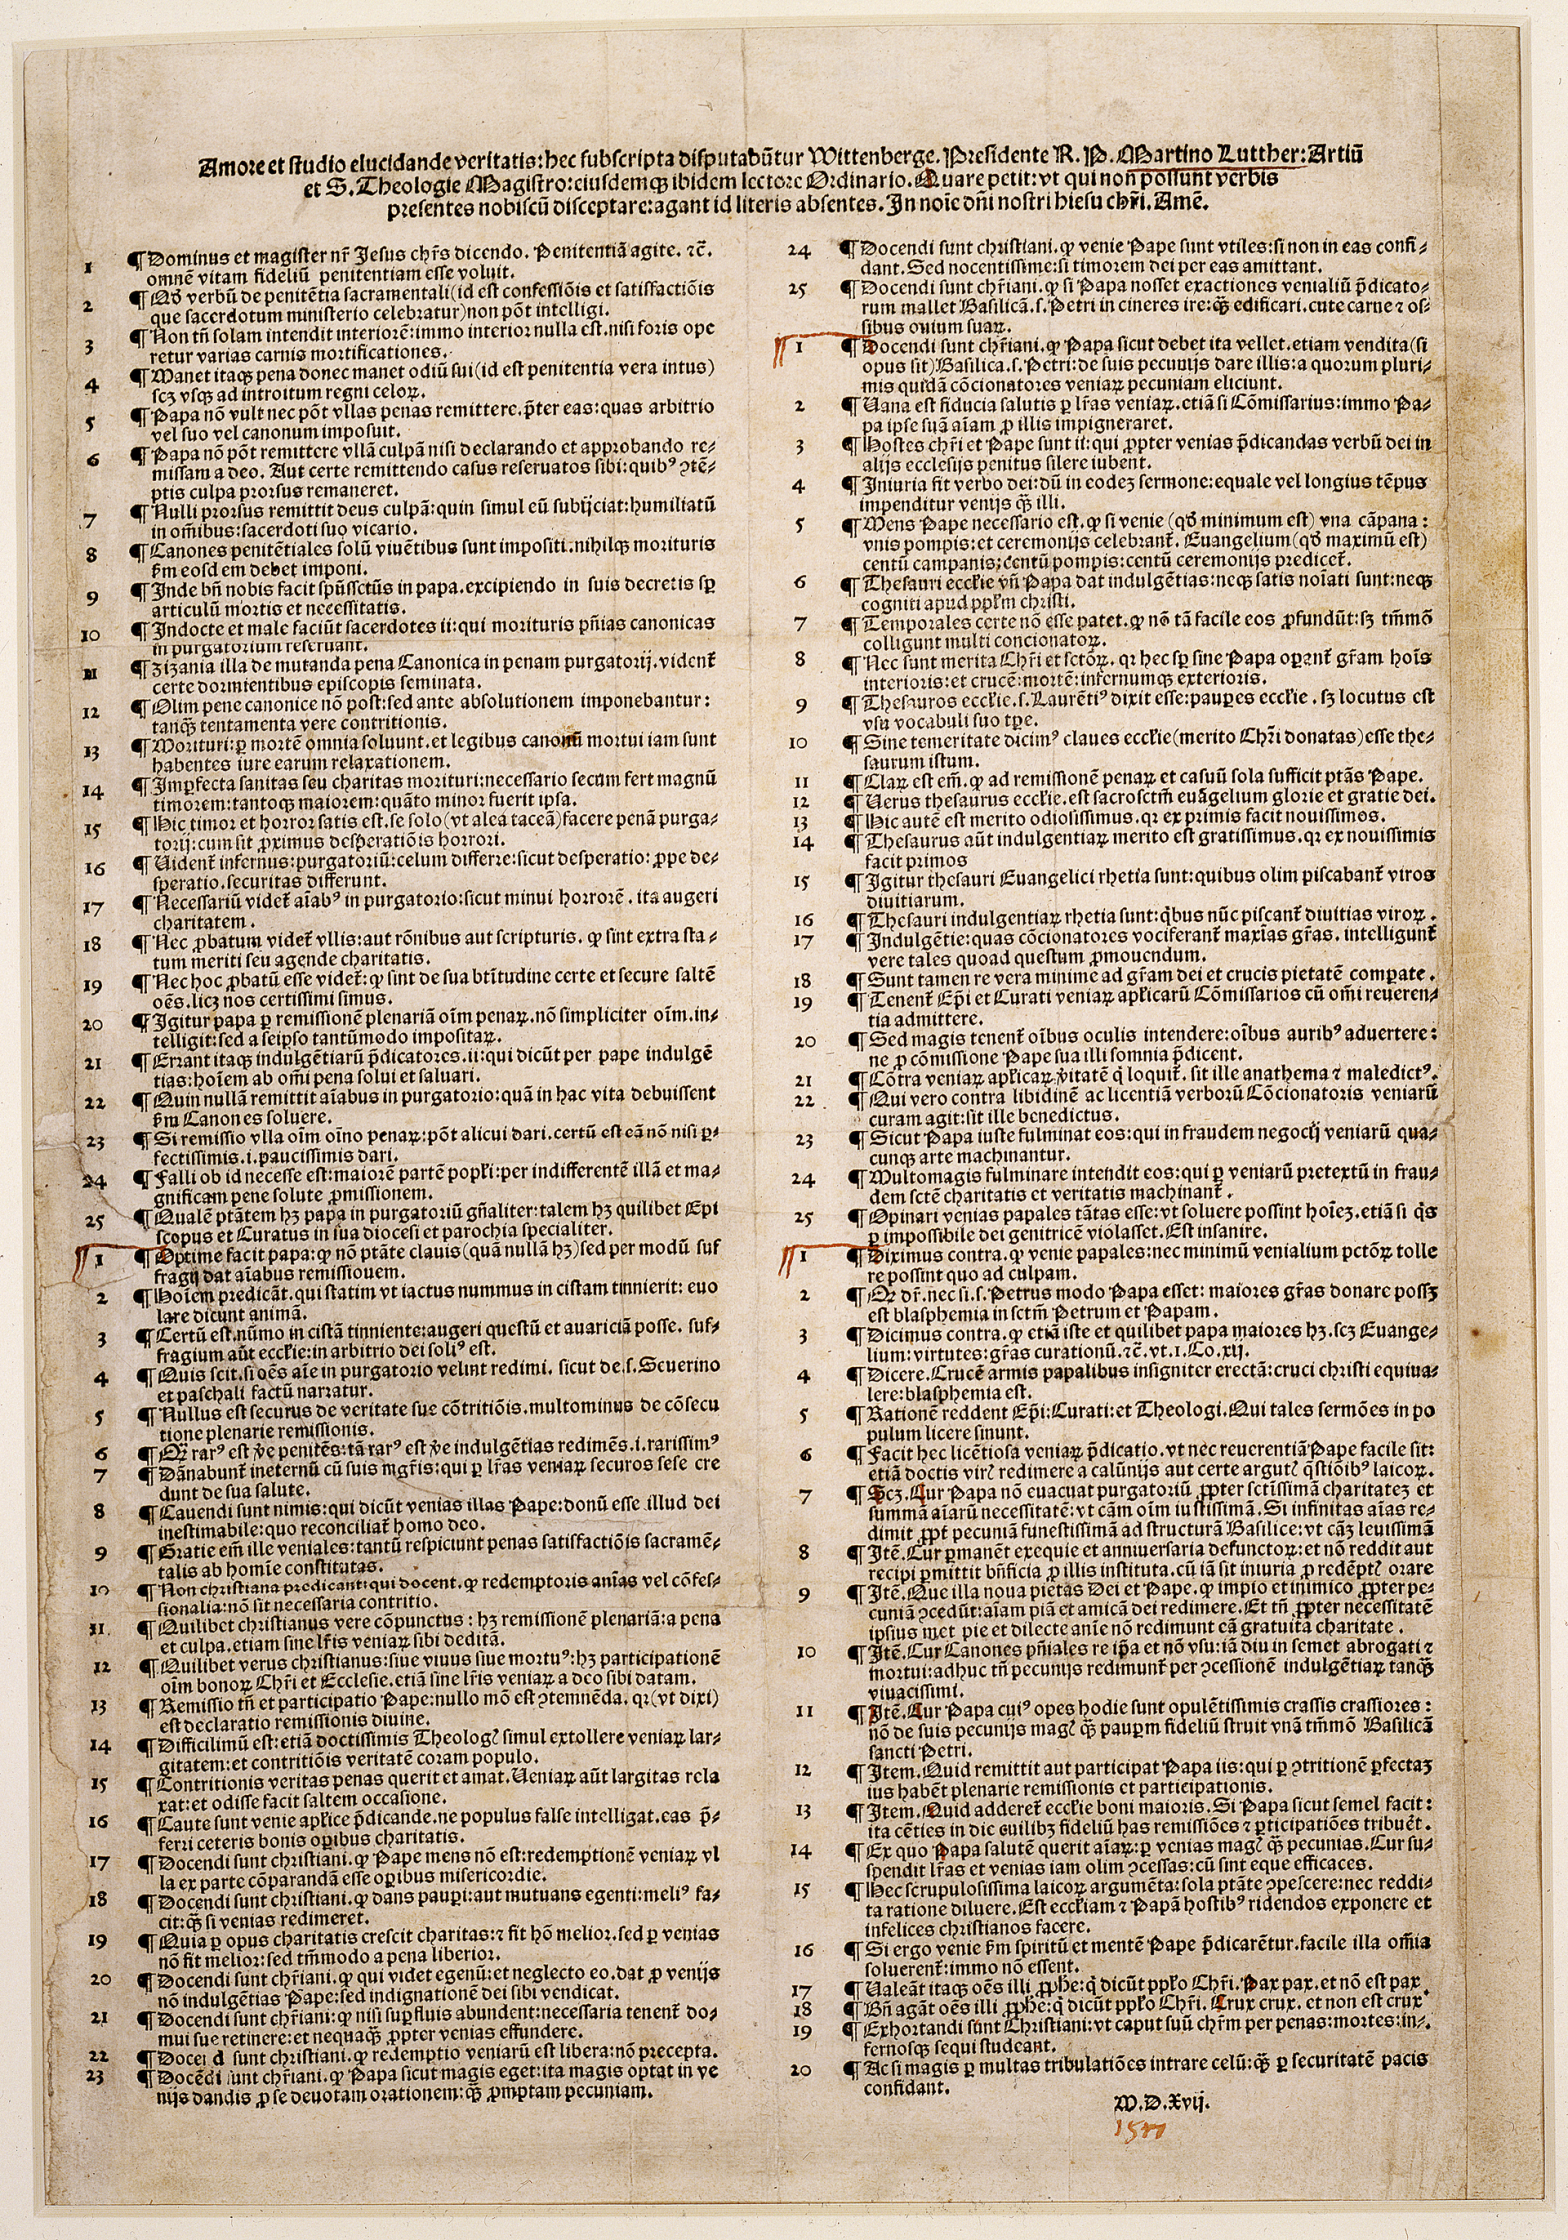 Amore et studio elucidande veritatis: hec subscripta disputabũtur Wittenberge. Presidente R. P. Martino Lutther: Artiũ
et S. Theologie Magistro: eiusdemqꝫ ibidem lectore Ordinario. Quare petit: vt qui non possunt verbis
presentes nobiscũ disceptare: agant id literis absentes. In noĩe dñi nostri hiesu chr̃i. Amẽ.
1 ¶ Dominus et magister nr̃ Jesus chr̃s dicendo. Penitentiã agite. ⁊c̃.
omnẽ vitam fideliũ penitentiam esse voluit.
2 ¶ Qð verbũ de penitẽtia sacramentali (id est confessiõis et satisfactiõis
que sacerdotum ministerio celebratur) non põt intelligi.
3 ¶ Non tñ solam intendit interiorẽ: immo interior nulla est. nisi foris ope
retur varias carnis mortificationes.
4 ¶ Manet itaqꝫ pena donec manet odiũ sui (id est penitentia vera intus)
scꝫ vsqꝫ ad introitum regni celoꝝ.
5 ¶ Papa nõ vult nec põt vllas penas remittere. p̃ter eas: quas arbitrio
vel suo vel canonum imposuit.
6 ¶ Papa nõ põt remittere vllã culpã nisi declarando et approbando re-
missam a deo. Aut certe remittendo casus reseruatos sibi: quibꝰ ↄtẽ-
ptis culpa prorsus remaneret.
7 ¶ Nulli prorsus remittit deus culpã: quin simul eũ subijciat: humiliatũ
in om̃ibus: sacerdoti suo vicario.
8 ¶ Canones penitẽtiales solũ viuẽtibus sunt impositi. nihilqꝫ morituris
ẜm eosdem debet imponi.
9 ¶ Inde bñ nobis facit spũssctũs in papa. excipiendo in suis decretis sꝑ
articulũ mortis et necessitatis.
10 ¶ Indocte et male faciũt sacerdotes ii: qui morituris pñias canonicas
in purgatorium reseruant.
11 ¶ Zizania illa de mutanda pena Canonica in penam purgatorij. vident̃
certe dormientibus episcopis seminata.
12 ¶ Olim pene canonice nõ post: sed ante absolutionem imponebantur:
tanqꝫ̃ tentamenta vere contritionis.
13 ¶ Morituri: ꝑ mortẽ omnia soluunt. et legibus canonũ mortui iam sunt
habentes iure earum relaxationem.
14 ¶ Imꝑfecta sanitas seu charitas morituri: necessario secum fert magnũ
timorem: tantoqꝫ maiorem: quãto minor fuerit ipsa.
15 ¶ Hic timor et horror satis est. se solo (vt alea taceã) facere penã purga-
torij: cum sit ꝓximus desperatiõis horrori.
16 ¶ Uident̃ infernus: purgatoriũ: celum differre: sicut desperatio: ꝓpe de-
speratio. securitas differunt.
17 ¶ Necessariũ videt̃ aĩabꝰ in purgatorio: sicut minui horrorẽ. ita augeri
charitatem.
18 ¶ Nec ꝓbatum videt̃ vllis: aut rõnibus aut scripturis. ꝙ sint extra sta-
tum meriti seu agende charitatis.
19 ¶ Nec hoc ꝓbatũ esse videt̃: ꝙ sint de sua btĩtudine certe et secure saltẽ
oẽs. licꝫ nos certissimi simus.
20 ¶ Igitur papa ꝑ remissionẽ plenariã oĩm penaꝝ. nõ simpliciter oĩm. in-
telligit: sed a seipso tantũmodo impositaꝝ.
21 ¶ Errant itaqꝫ indulgẽtiarũ p̃dicatores. ii: qui dicũt per pape indulgẽ
tias: hoĩem ab om̃i pena solui et saluari.
22 ¶ Quin nullã remittit aĩabus in purgatorio: quã in hac vita debuissent
ẜm Canones soluere.
23 ¶ Si remissio vlla oĩm oĩno penaꝝ: põt alicui dari. certũ est eã nõ nisi ꝑ-
fectissimis. i. paucissimis dari.
24 ¶ Falli ob id necesse est: maiorẽ partẽ popl̃i: per indifferentẽ illã et ma-
gnificam pene solute ꝓmissionem.
25 ¶ Qualẽ ptãtem hꝫ papa in purgatoriũ gñaliter: talem hꝫ quilibet Epi
scopus et Curatus in sua diocesi et parochia specialiter.
1 ¶ Optime facit papa: ꝙ nõ ptãte clauis (quã nullã hꝫ) sed per modũ suf
fragij dat aĩabus remissiouem.
2 ¶ Hoĩem predicãt. qui statim vt iactus nummus in cistam tinnierit: euo
lare dicunt animã.
3 ¶ Certũ est. nũmo in cistã tinniente: augeri questũ et auariciã posse. suf-
fragium aũt eccl̃ie: in arbitrio dei soliꝰ est.
4 ¶ Quis scit. si oẽs aĩe in purgatorio velint redimi. sicut de. s. Seuerino
et paschali factũ narratur.
5 ¶ Nullus est securus de veritate sue cõtritiõis. multominus de cõsecu
tione plenarie remissionis.
6 ¶ Qꝫ̃ rarꝰ est ꝟe penitẽs: tã rarꝰ est ꝟe indulgẽtias redimẽs. i. rarissimꝰ
7 ¶ Dãnabunt̃ ineternũ cũ suis mgr̃is: qui ꝑ lr̃as veniaꝝ securos sese cre
dunt de sua salute.
8 ¶ Cauendi sunt nimis: qui dicũt venias illas Pape: donũ esse illud dei
inestimabile: quo reconciliat̃ homo deo.
9 ¶ Gratie em̃ ille veniales: tantũ respiciunt penas satisfactiõis sacramẽ-
talis ab homĩe constitutas.
10 ¶ Non christiana predicant: qui docent. ꝙ redemptoris anĩas vel cõfes-
sionalia: nõ sit necessaria contritio.
11 ¶ Quilibet christianus vere cõpunctus: hꝫ remissionẽ plenariã: a pena
et culpa. etiam sine lr̃is veniaꝝ sibi deditã.
12 ¶ Quilibet verus christianus: siue viuus siue mortuꝰ: hꝫ participationẽ
oĩm bonoꝝ Chr̃i et Ecclesie. etiã sine lr̃is veniaꝝ a deo sibi datam.
13 ¶ Remissio tñ et participatio Pape: nullo mõ est ↄtemnẽda. qꝛ (vt dixi)
est declaratio remissionis diuine.
14 ¶ Difficilimũ est: etiã doctissimis Theologꝭ simul extollere veniaꝝ lar-
gitatem: et contritiõis veritatẽ coram populo.
15 ¶ Contritionis veritas penas querit et amat. Ueniaꝝ aũt largitas rela
xat: et odisse facit saltem occasione.
16 ¶ Caute sunt venie apl̃ice p̃dicande. ne populus false intelligat. eas p̃-
ferri ceteris bonis oꝑibus charitatis.
17 ¶ Docendi sunt christiani. ꝙ Pape mens nõ est: redemptionẽ veniaꝝ vl
la ex parte cõparandã esse oꝑibus misericordie.
18 ¶ Docendi sunt christiani. ꝙ dans pauꝑi: aut mutuans egenti: meliꝰ fa-
cit: qꝫ̃ si venias redimeret.
19 ¶ Quia ꝑ opus charitatis crescit charitas: ⁊ fit hõ melior. sed ꝑ venias
nõ fit melior: sed tm̃modo a pena liberior.
20 ¶ Docendi sunt chr̃iani. ꝙ qui videt egenũ: et neglecto eo. dat ꝓ venijs
nõ indulgẽtias Pape: sed indignationẽ dei sibi vendicat.
21 ¶ Docendi sunt chr̃iani: ꝙ nisi suꝑfluis abundent: necessaria tenent̃ do-
mui sue retinere: et nequaqꝫ̃ ꝓpter venias effundere.
22 ¶ Docendi sunt christiani. ꝙ redemptio veniarũ est libera: nõ precepta.
23 ¶ Docẽdi sunt chr̃iani. ꝙ Papa sicut magis eget: ita magis optat in ve
nijs dandis ꝓ se deuotam orationem: qꝫ̃ ꝓmptam pecuniam.
24 ¶ Docendi sunt christiani. ꝙ venie Pape sunt vtiles: si non in eas confi-
dant. Sed nocentissime: si timorem dei per eas amittant.
25 ¶ Docendi sunt chr̃iani. ꝙ si Papa nosset exactiones venialiũ p̃dicato-
rum mallet Basilicã. s. Petri in cineres ire: qꝫ̃ edificari. cute carne ⁊ os-
sibus ouium suaꝝ.
1 ¶ Docendi sunt chr̃iani. ꝙ Papa sicut debet ita vellet. etiam vendita (si
opus sit) Basilica. s. Petri: de suis pecunijs dare illis: a quorum pluri-
mis quidã cõcionatores veniaꝝ pecuniam eliciunt.
2 ¶ Uana est fiducia salutis ꝑ lr̃as veniaꝝ. etiã si Cõmissarius: immo Pa-
pa ipse suã aĩam ꝓ illis impigneraret.
3 ¶ Hostes chr̃i et Pape sunt ii: qui ꝓpter venias p̃dicandas verbũ dei in
alijs ecclesijs penitus silere iubent.
4 ¶ Iniuria fit verbo dei: dũ in eodeꝫ sermone: equale vel longius tẽpus
impenditur venijs qꝫ̃ illi.
5 ¶ Mens Pape necessario est. ꝙ si venie (qð minimum est) vna cãpana:
vnis pompis: et ceremonijs celebrant̃. Euangelium (qð maximũ est)
centũ campanis: centũ pompis: centũ ceremonijs predicet̃.
6 ¶ Thesauri eccl̃ie vñ Papa dat indulgẽtias: neqꝫ satis noĩati sunt: neqꝫ
cogniti apud ppl̃m christi.
7 ¶ Temporales certe nõ esse patet. ꝙ nõ tã facile eos ꝓfundũt: sꝫ tm̃mõ
colligunt multi concionatoꝝ.
8 ¶ Nec sunt merita Chr̃i et sctõꝝ. qꝛ hec sꝑ sine Papa oꝑant̃ gr̃am hoĩs
interioris: et crucẽ: mortẽ: infernumqꝫ exterioris.
9 ¶ Thesauros eccl̃ie. s. Laurẽtiꝰ dixit esse: pauꝑes eccl̃ie. sꝫ locutus est
vsu vocabuli suo tꝑe.
10 ¶ Sine temeritate dicimꝰ claues eccl̃ie (merito Chr̃i donatas) esse the-
saurum istum.
11 ¶ Claꝝ est em̃. ꝙ ad remissionẽ penaꝝ et casuũ sola sufficit ptãs Pape.
12 ¶ Uerus thesaurus eccl̃ie. est sacrosctm̃ euãgelium glorie et gratie dei.
13 ¶ Hic autẽ est merito odiosissimus. qꝛ ex primis facit nouissimos.
14 ¶ Thesaurus aũt indulgentiaꝝ merito est gratissimus. qꝛ ex nouissimis
facit primos
15 ¶ Igitur thesauri Euangelici rhetia sunt: quibus olim piscabant̃ viros
diuitiarum.
16 ¶ Thesauri indulgentiaꝝ rhetia sunt: q̃bus nũc piscant̃ diuitias viroꝝ.
17 ¶ Indulgẽtie: quas cõcionatores vociferant̃ maxĩas gr̃as. intelligunt̃
vere tales quoad questum ꝓmouendum.
18 ¶ Sunt tamen re vera minime ad gr̃am dei et crucis pietatẽ comꝑate.
19 ¶ Tenent̃ Ep̃i et Curati veniaꝝ apl̃icarũ Cõmissarios cũ om̃i reueren-
tia admittere.
20 ¶ Sed magis tenent̃ oĩbus oculis intendere: oĩbus auribꝰ aduertere:
ne ꝓ cõmissione Pape sua illi somnia p̃dicent.
21 ¶ Cõtra veniaꝝ apl̃icaꝝ ꝟitatẽ q̃ loquit̃. sit ille anathema ⁊ maledictꝰ.
22 ¶ Qui vero contra libidinẽ ac licentiã verborũ Cõcionatoris veniarũ
curam agit: sit ille benedictus.
23 ¶ Sicut Papa iuste fulminat eos: qui in fraudem negocij veniarũ qua-
cunqꝫ arte machinantur.
24 ¶ Multomagis fulminare intendit eos: qui ꝑ veniarũ pretextũ in frau-
dem sctẽ charitatis et veritatis machinant̃.
25 ¶ Opinari venias papales tãtas esse: vt soluere possint hoĩeꝫ. etiã si q̃s
ꝑ impossibile dei genitricẽ violasset. Est insanire.
1 ¶ Diximus contra. ꝙ venie papales: nec minimũ venialium pctõꝝ tolle
re possint quo ad culpam.
2 ¶ Qꝛ dr̃. nec si. s. Petrus modo Papa esset: maiores gr̃as donare possꝫ
est blasphemia in sctm̃ Petrum et Papam.
3 ¶ Dicimus contra. ꝙ etiã iste et quilibet papa maiores hꝫ. scꝫ Euange-
lium: virtutes: gr̃as curationũ. ⁊c̃. vt. 1. Co. xij.
4 ¶ Dicere. Crucẽ armis papalibus insigniter erectã: cruci christi equiua-
lere: blasphemia est.
5 ¶ Rationẽ reddent Ep̃i: Curati: et Theologi. Qui tales sermões in po
pulum licere sinunt.
6 ¶ Facit hec licẽtiosa veniaꝝ p̃dicatio. vt nec reuerentiã Pape facile sit:
etiã doctis virꝭ redimere a calũnijs aut certe argutꝭ q̃stiõibꝰ laicoꝝ.
7 ¶ Scꝫ. Cur Papa nõ euacuat purgatoriũ ꝓpter sctĩssimã charitateꝫ et
summã aĩarũ necessitatẽ: vt cãm oĩm iustissimã. Si infinitas aĩas re-
dimit ꝓpt̃ pecuniã funestissimã ad structurã Basilice: vt cãꝫ leuissimã
8 ¶ Itẽ. Cur ꝑmanẽt exequie et anniuersaria defunctoꝝ: et nõ reddit aut
recipi ꝑmittit bñficia ꝓ illis instituta. cũ iã sit iniuria ꝓ redẽptꝭ orare
9 ¶ Itẽ. Que illa noua pietas Dei et Pape. ꝙ impio et inimico ꝓpter pe-
cuniã ↄcedũt: aĩam piã et amicã dei redimere. Et tñ ꝓpter necessitatẽ
ipsius met pie et dilecte anĩe nõ redimunt eã gratuita charitate.
10 ¶ Itẽ. Cur Canones pñiales re ip̃a et nõ vsu: iã diu in semet abrogati ⁊
mortui: adhuc tñ pecunijs redimunt̃ per ↄcessionẽ indulgẽtiaꝝ tanqꝫ̃
viuacissimi.
11 ¶ Itẽ. Cur Papa cuiꝰ opes hodie sunt opulẽtissimis crassis crassiores:
nõ de suis pecunijs magꝭ qꝫ̃ pauꝑm fideliũ struit vnã tm̃mõ Basilicã
sancti Petri.
12 ¶ Item. Quid remittit aut participat Papa iis: qui ꝑ ↄtritionẽ ꝑfectaꝫ
ius habẽt plenarie remissionis et participationis.
13 ¶ Item. Quid adderet̃ eccl̃ie boni maioris. Si Papa sicut semel facit:
ita cẽties in die cuilibꝫ fideliũ has remissiões ⁊ ꝑticipatiões tribuẽt.
14 ¶ Ex quo Papa salutẽ querit aĩaꝝ: ꝑ venias magꝭ qꝫ̃ pecunias. Cur su-
spendit lr̃as et venias iam olim ↄcessas: cũ sint eque efficaces.
15 ¶ Hec scrupulosissima laicoꝝ argumẽta: sola ptãte ↄpescere: nec reddi-
ta ratione diluere. Est eccl̃iam ⁊ Papã hostibꝰ ridendos exponere et
infelices christianos facere.
16 ¶ Si ergo venie ẜm spiritũ et mentẽ Pape p̃dicarẽtur. facile illa om̃ia
soluerent̃: immo nõ essent.
17 ¶ Ualeãt itaqꝫ oẽs illi ꝓphe: q̃ dicũt ppl̃o Chr̃i. Pax pax. et nõ est pax.
18 ¶ Bñ agãt oẽs illi ꝓphe: q̃ dicũt ppl̃o Chr̃i. Crux crux. et non est crux.
19 ¶ Exhortandi sunt Christiani: vt caput suũ chr̃m per penas: mortes: in-
fernosqꝫ sequi studeant.
20 ¶ Ac si magis ꝑ multas tribulatiões intrare celũ: qꝫ̃ ꝑ securitatẽ pacis
confidant.
M. D. Xvij.
1517